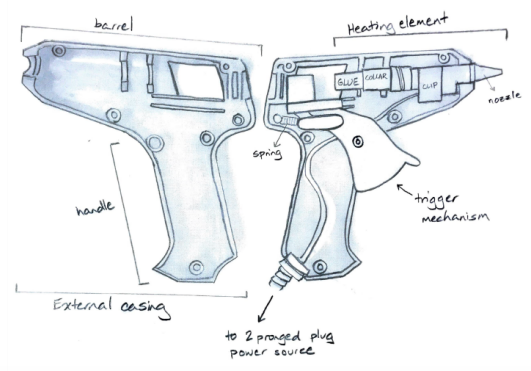 barrel
Heating element
GLUE
COLLAR
CLIP
nozzle
spring
handle
trigger
mechanism
External casing
to 2 pronged plug
power source